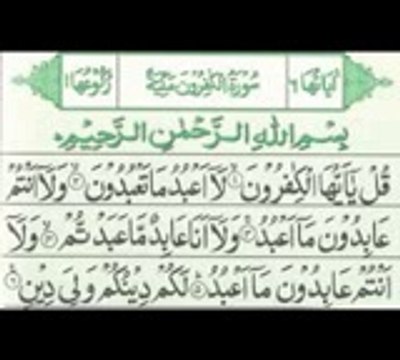 اٰيَاتُهَا ٦ سُوْرَةُ الْكٰفِرُوْنَ مَكِّيَّةٌ رُكُوْعُهَا ١
بِسْمِ اللّٰهِ الرَّحْمٰنِ الرَّحِيْمِ
قُلْ يٰٓاَيُّهَا الْكٰفِرُوْنَ ۙ١ لَآ اَعْبُدُ مَا تَعْبُدُوْنَ ۙ٢ وَلَآ اَنْتُمْ
عٰبِدُوْنَ مَآ اَعْبُدُ ۚ٣ وَلَآ اَنَا عَابِدٌ مَّا عَبَدْتُّمْ ۙ٤ وَلَآ
اَنْتُمْ عٰبِدُوْنَ مَآ اَعْبُدُ ۭ٥ لَكُمْ دِيْنُكُمْ وَلِيَ دِيْنِ ٦